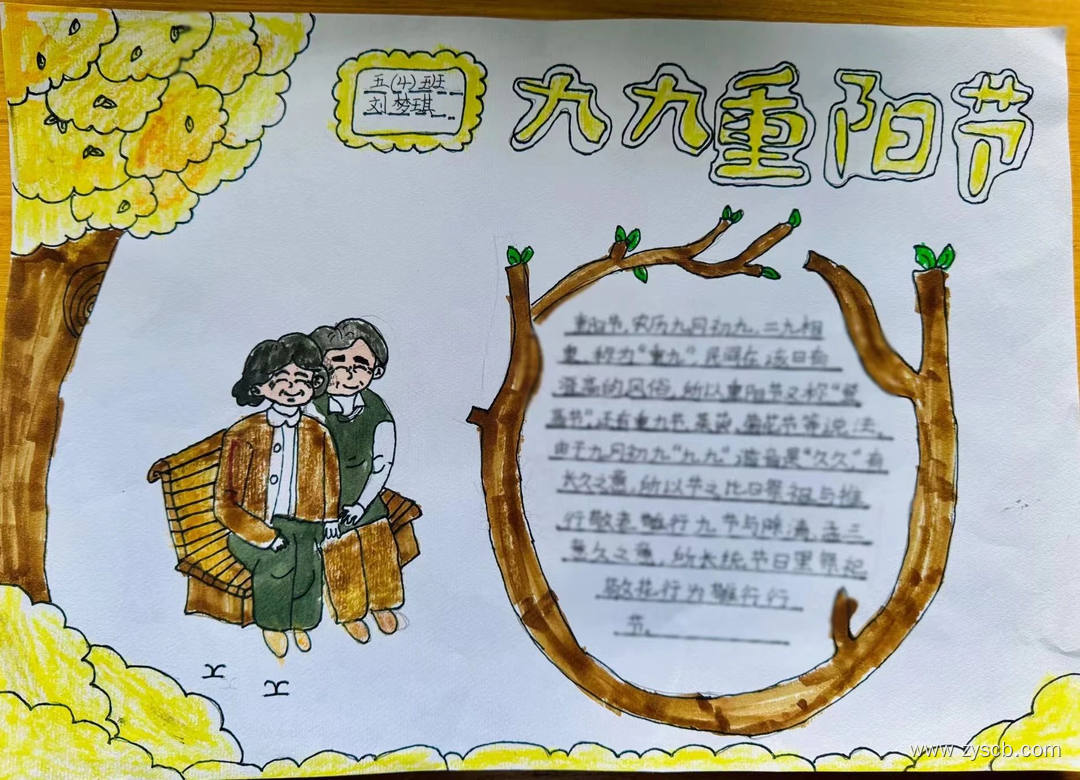 五(4)班
刘梦琪
九九重阳节
重阳节,农历九月初九,二九相
重,称为"重九",民间在该日有
登高的风俗,所以重阳节又称"登
高节",还有重九节、茱萸、菊花节等说法。
由于九月初九"九九"谐音是"久久",有
长久之意,所以节之比日祭祖与推
行敬老
意久之意,所长统节日里祭祀
行为
节。
www.zyscb.com